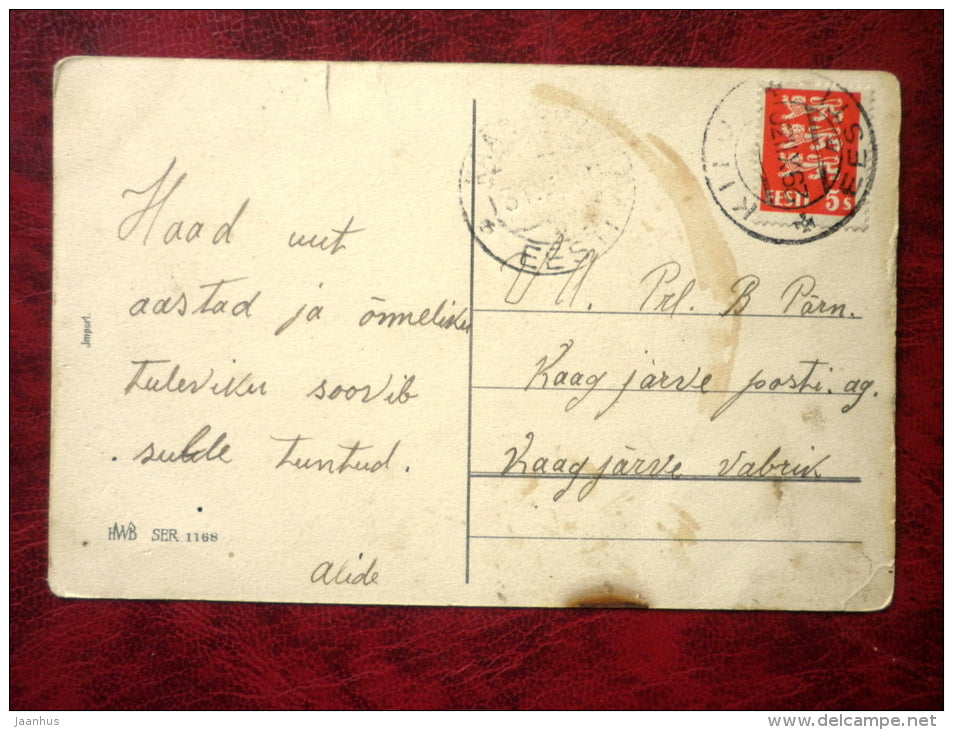 Haad uut
aastad ja õnneliku
tuleviku soovib
sulle tuntud.
Alide
Jmport.
HWB SER 1168
EESTI 5 s
EESTI
EESTI
Prl. B Pärn.
Kaagjärve posti. ag.
Kaagjärve vabrik
Jaanhus
www.delcampe.net